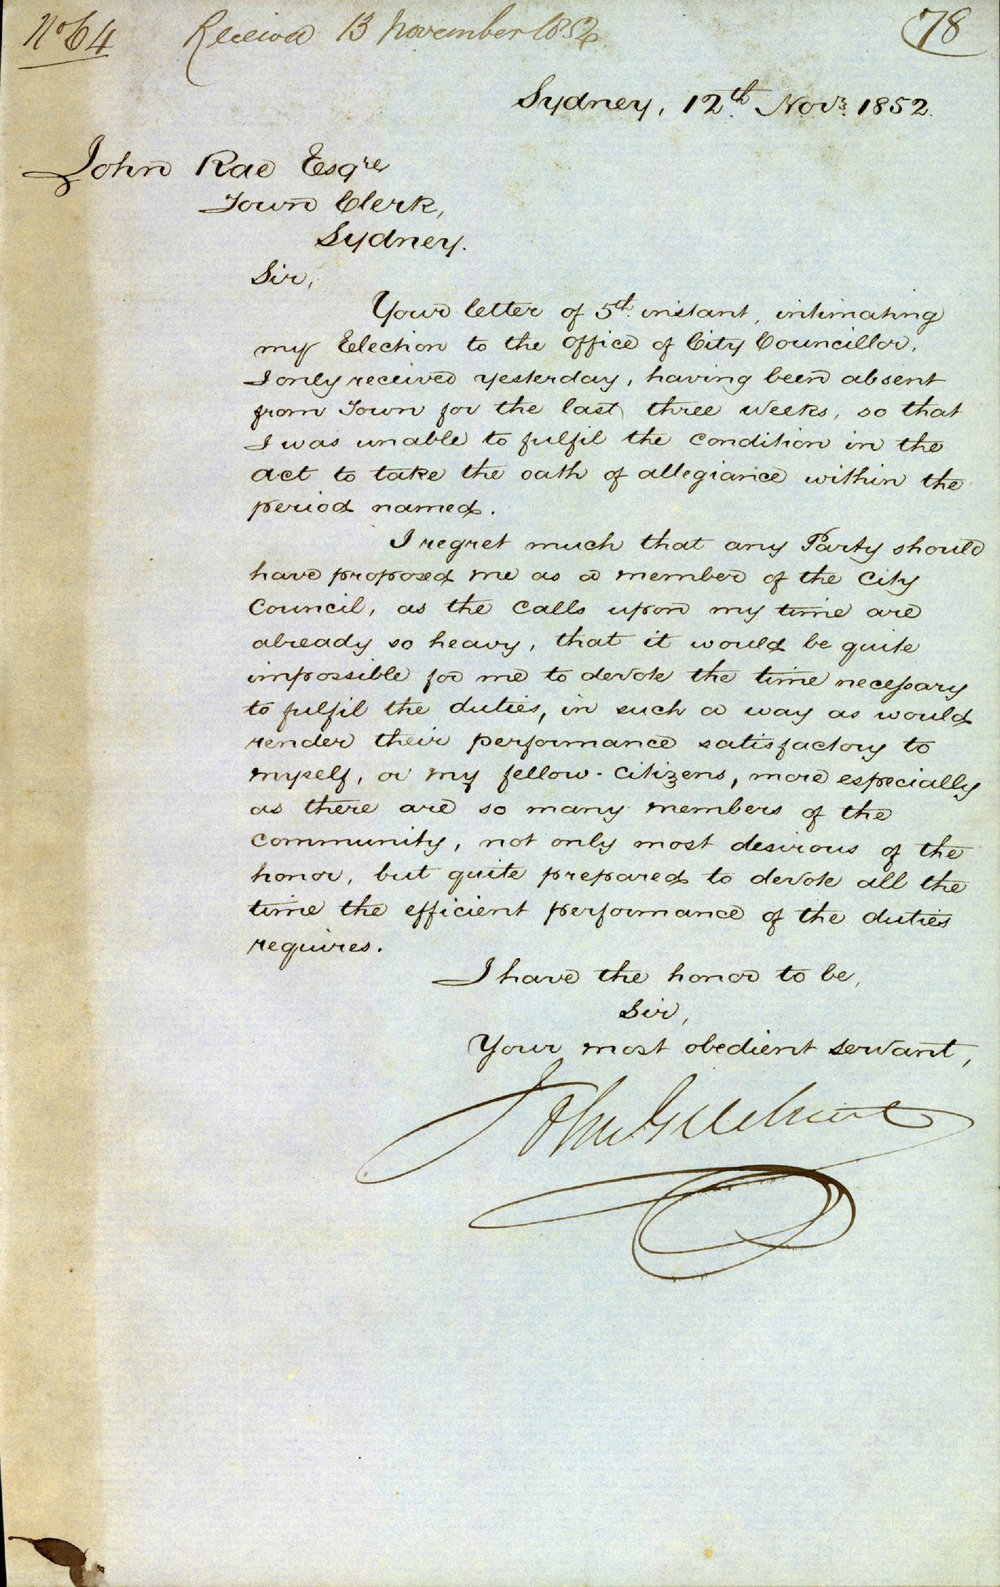 No 64 Received 13 November 1852 78
Sydney, 12th Novr. 1852.
John Rae Esqre
Town Clerk,
Sydney.
Sir,
Your letter of 5th instant, intimating
my Election to the Office of City Councillor,
I only received yesterday, having been absent
from Town for the last three weeks, so that
I was unable to fulfil the condition in the
act to take the oath of allegiance within the
period named.
I regret much that any Party should
have proposed me as a member of the City
Council, as the calls upon my time are
already so heavy, that it would be quite
impossible for me to devote the time necessary
to fulfil the duties, in such a way as would
render their performance satisfactory to
myself, or my fellow-citizens, more especially
as there are so many members of the
community, not only most desirous of the
honor, but quite prepared to devote all the
time the efficient performance of the duties
requires.
I have the honor to be,
Sir,
Your most obedient servant,
John Gilchrist